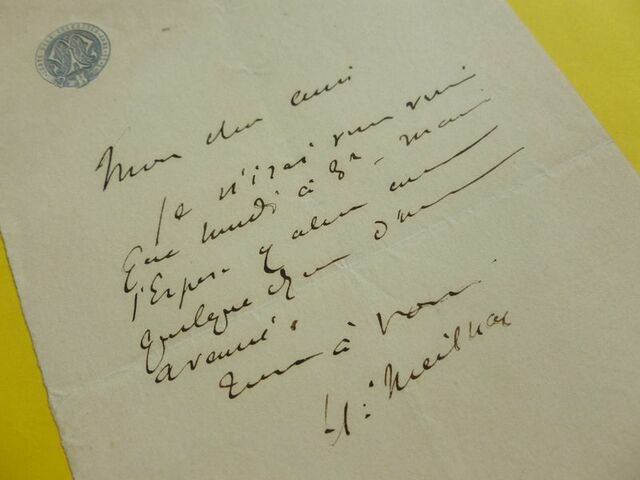 Mon cher ami
Je n'irai vous voir
que lundi à 3h - mais
j'espère qu'alors nous
quelque chose d'un
avancé.
Tout à vous.
H. Meilhac